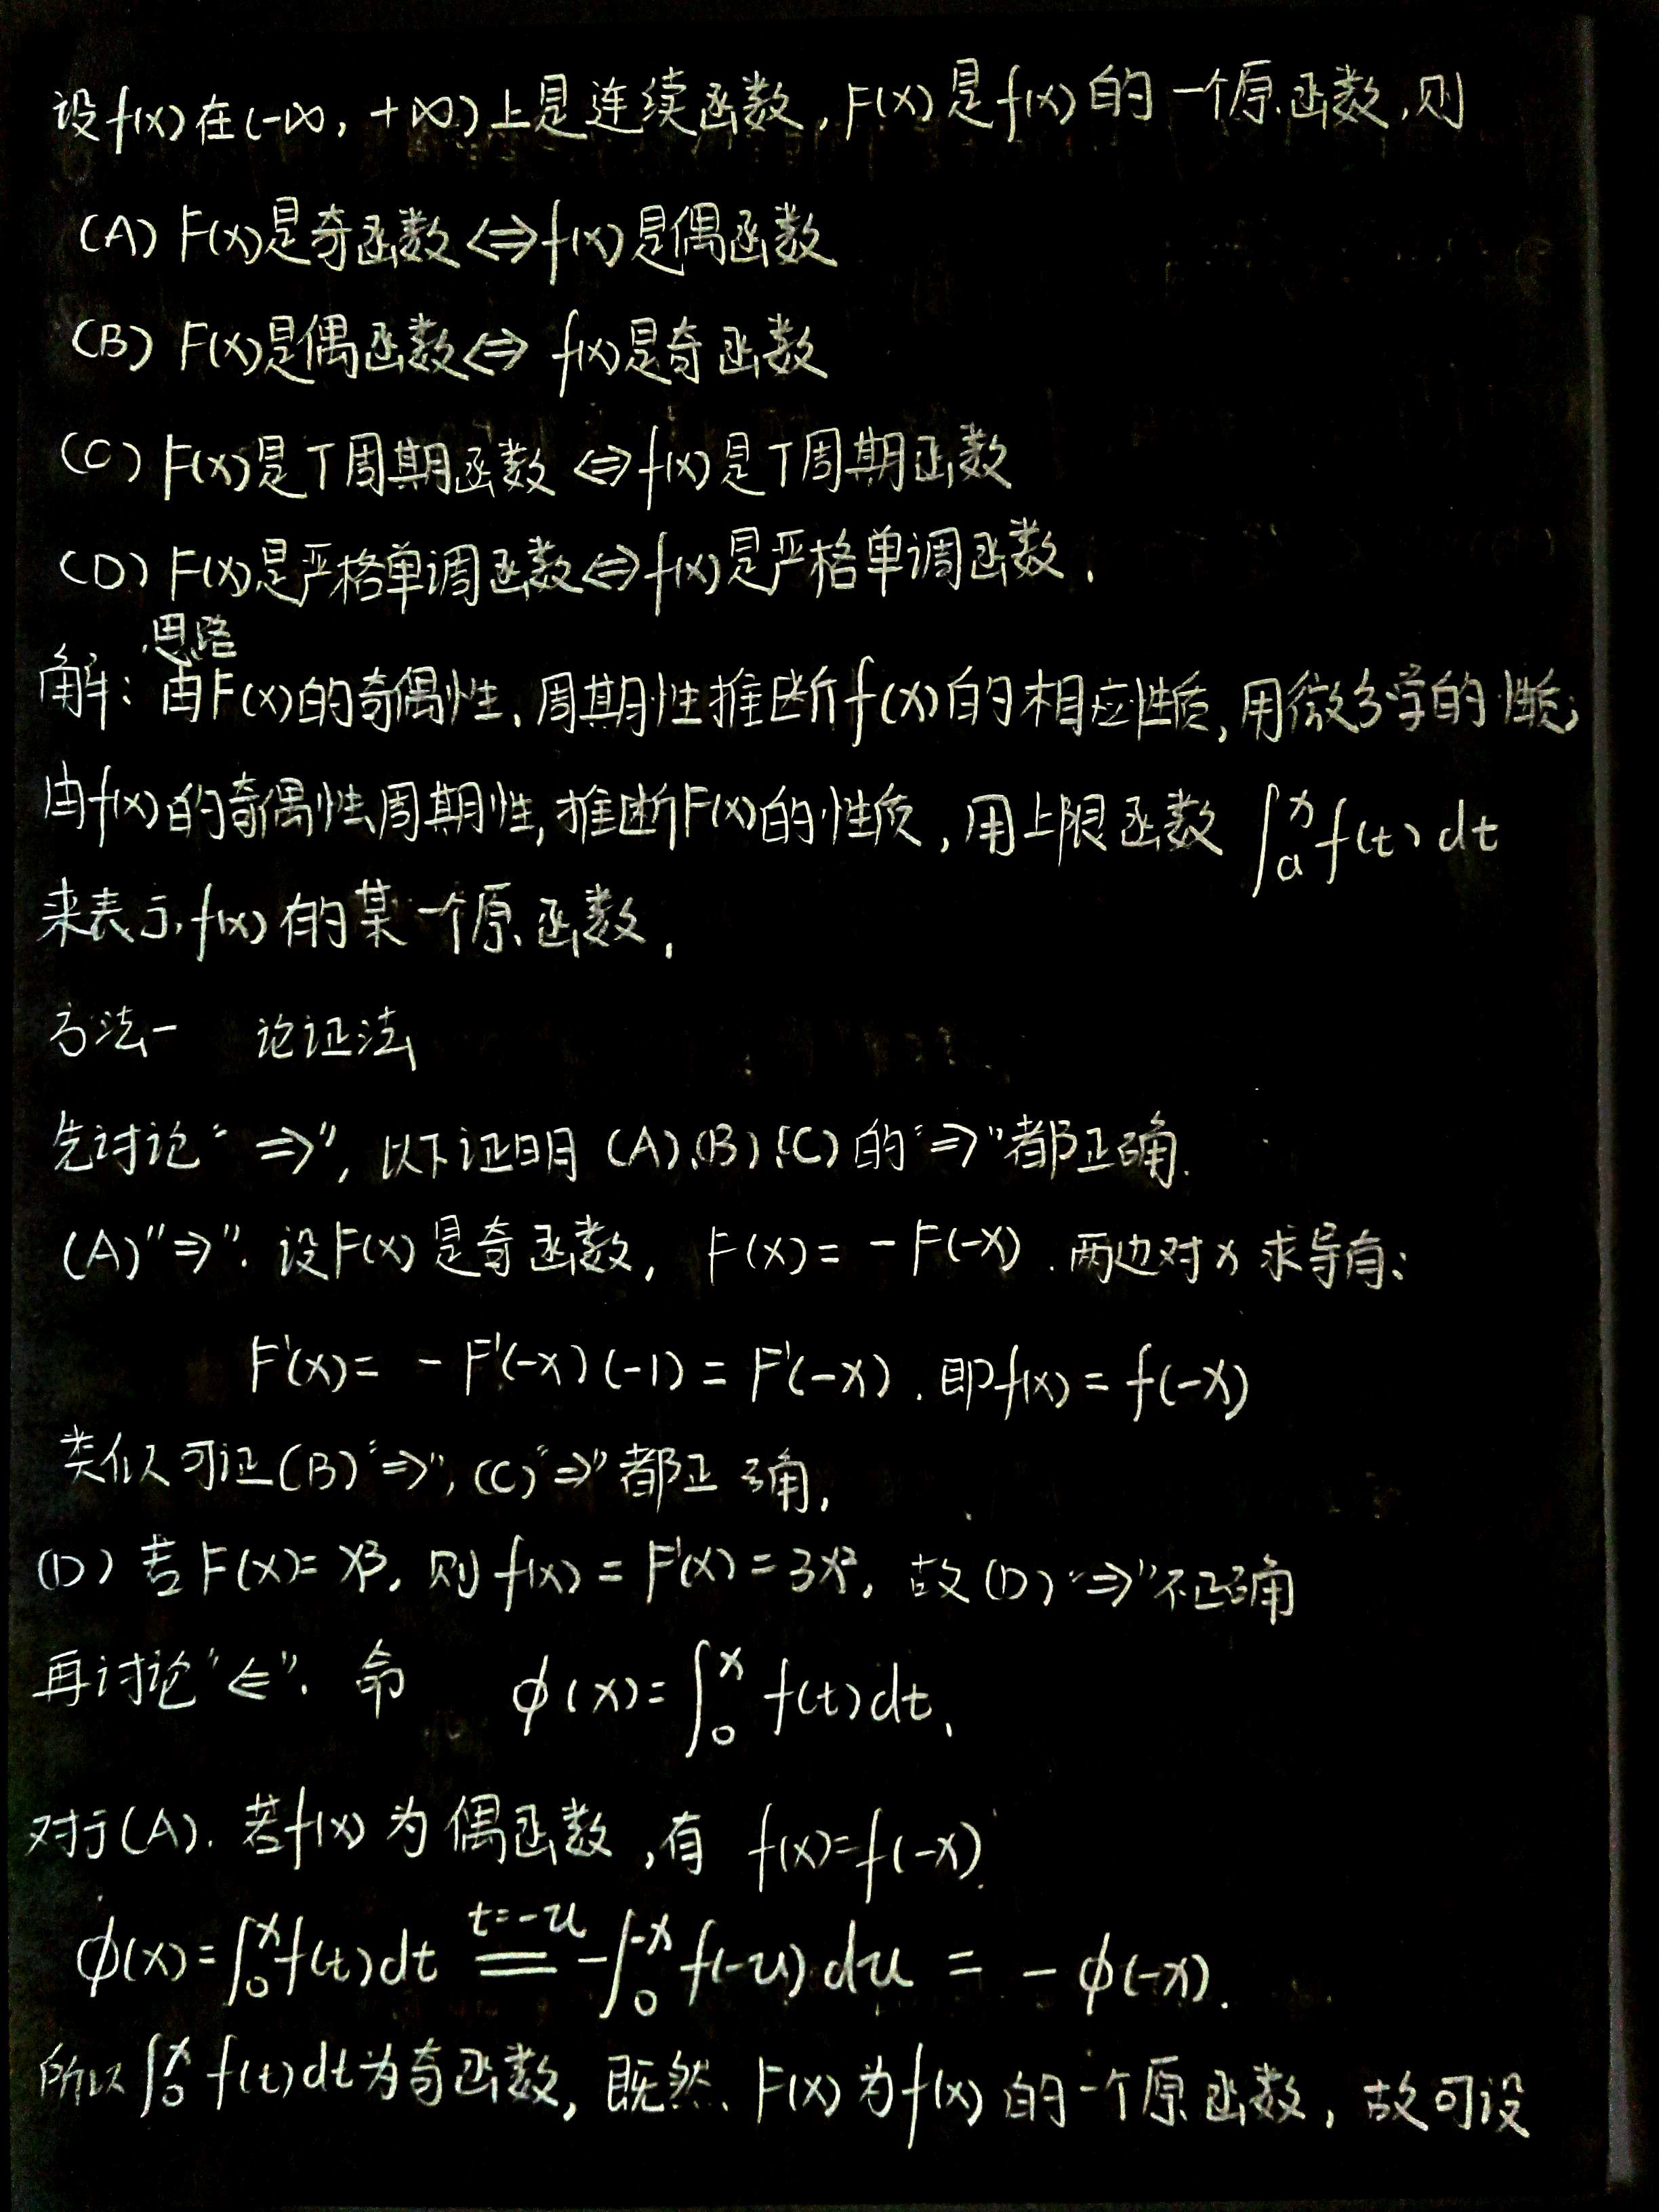 设f(x)在(-∞, +∞)上是连续函数,F(x)是f(x)的一个原函数,则
(A) F(x)是奇函数⇔f(x)是偶函数
(B) F(x)是偶函数⇔ f(x)是奇函数
(C) F(x)是T周期函数 ⇔f(x)是T周期函数
(D) F(x)是严格单调函数⇔f(x)是严格单调函数.
思路
解: 由F(x)的奇偶性、周期性推断f(x)的相应性质,用微分学的性质;
由f(x)的奇偶性、周期性,推断F(x)的性质,用上限函数 ∫_a^x f(t)dt
来表示f(x)的某一个原函数.
方法一 论证法
先讨论"⇒",以下证明(A)、(B)、(C)的"⇒"都正确.
(A)"⇒". 设F(x)是奇函数, F(x)= -F(-x). 两边对x求导有:
F'(x)= -F'(-x)(-1)=F'(-x). 即f(x)=f(-x)
类似可证(B)"⇒",(C)"⇒"都正确,
(D) 若F(x)=x³, 则f(x)=F'(x)=3x², 故(D)"⇒"不正确
再讨论"⇐". 命 φ(x)=∫_0^x f(t)dt.
对于(A). 若f(x)为偶函数,有 f(x)=f(-x).
φ(x)=∫_0^x f(t)dt \overset{t=-u}{=} -∫_0^{-x} f(-u)du = -φ(-x).
所以∫_0^x f(t)dt为奇函数, 既然F(x)为f(x)的一个原函数, 故可设